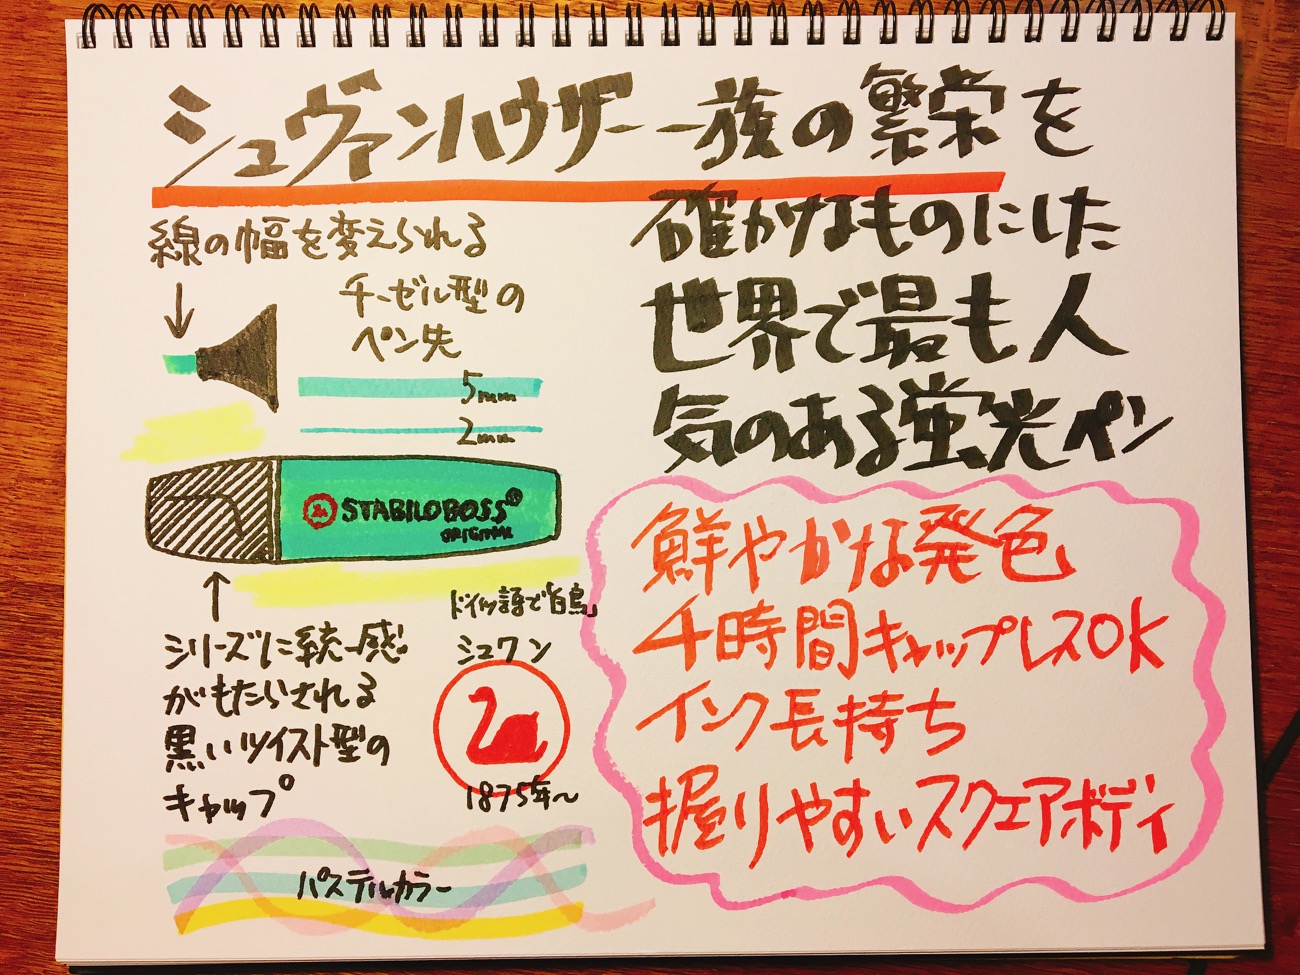 シュヴァンハウザー一族の繁栄を
確かなものにした
世界で最も人
気のある蛍光ペン
線の幅を変えられる
チーゼル型の
ペン先
5mm
2mm
STABILO BOSS
ORIGINAL
シリーズに統一感
がもたらされる
黒いツイスト型の
キャップ
ドイツ語で「白鳥」
シュワン
1875年〜
パステルカラー
鮮やかな発色
4時間キャップレスOK
インク長持ち
握りやすいスクエアボディ